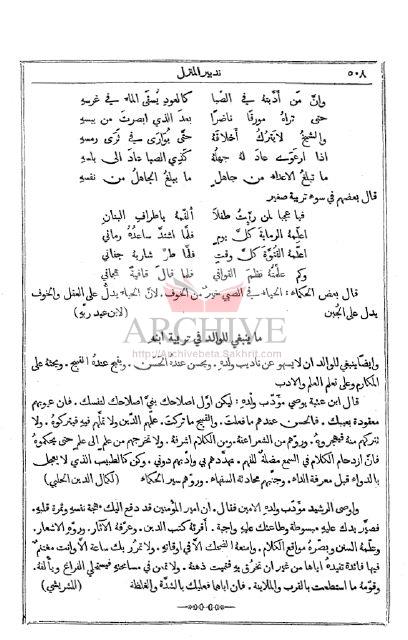 ٥٠٨ تدبير المنزل
وانّ من أدّبته في الصبا كالعود يُسقى الماء في غرسهِ
حتى تراه مورقًا ناضرًا بعد الذي ابصرت من يبسهِ
والشيخ لا يترك أخلاقهُ حتى يُوارى في ثرى رمسهِ
اذا ارعوى عاد لهُ جهلهُ كذي الصبا عاد الى
ما تبلغ الاعداء من جاهلٍ ما يبلغ الجاهل من نفسهِ
قال بعضهم في سوء تربية صغير
فيا عجبا لمن ربّيت طفلًا ألقّمهُ باطراف البنان
اعلّمهُ الرماية كلّ يوم فلمّا اشتدّ ساعدهُ رماني
اعلّمهُ الفتوّة كلّ وقتٍ فلمّا طرّ شاربهُ جفاني
وكم علّمتهُ نظم القوافي فلمّا قال قافيةً هجاني
قال بعض الحكماء: الحياء في الصبي خير من الخوف. لانّ الحياء يدلّ على العقل والخوف
يدل على الجُبن (لابن عبد ربّهِ)
ARCHIVE
http://Archivebeta.Sakhrit.com
ما ينبغي للوالد في تربية ابنه
وايضًا ينبغي للوالد ان لا يسهو عن تأديب ولدهِ. ويحسن عندهُ الحسن. ويقبح عندهُ القبيح. ويحثهُ على
المكارم وعلى تعلم العلم والادب
قال ابن عتبة يوصي مؤدّب ولدهِ: ليكن اوّل اصلاحك بنيّ اصلاحك لنفسك. فان عيوبهم
معقودة بعيبك. فالحسن عندهم ما فعلت. والقبيح ما تركت. علّمهم الدين ولا تملّهم فيهِ فيتركوهُ. ولا
تتركهم منه فيهجروهُ. وروّهم من الشعر اعفهُ. ومن الكلام اشرفهُ. ولا تخرجهم من علم الى علم حتى يحكموهُ
فان ازدحام الكلام في السمع مضلّة للفهم. تهدّدهم بي وادّبهم دوني. وكن كالطبيب الذي لا يعجل
بالدواء قبل معرفة الداء. وجنّبهم محادثة السفهاء. وروّهم سير الحكماء (لكمال الدين الحلبي)
واوصى الرشيد مؤدّب ولدهِ الامين فقال. ان امير المؤمنين قد دفع اليك مهجة نفسهِ وثمرة قلبهِ.
فصيّر يدك عليهِ مبسوطة وطاعتك عليهِ واجبة. أقرئهُ كتب الدين. وعرّفهُ الآثار. وروّهِ الاشعار.
وعلّمهُ السنن وبصّرهُ مواقع الكلام. وامنعهُ الضحك الّا في اوقاتهِ. ولا تمرر بك ساعة الّا وانت مغتنم
فيها فائدة تفيدهُ اياها من غير ان تخرق بهِ فتميت ذهنهُ. ولا تمعن في مسامحتهِ فيستحلي الفراغ ويألفهُ.
وقوّمهُ ما استطعت بالقرب والملاينة. فان اباهما فعليك بالشدّة والغلظة (للشريشي)